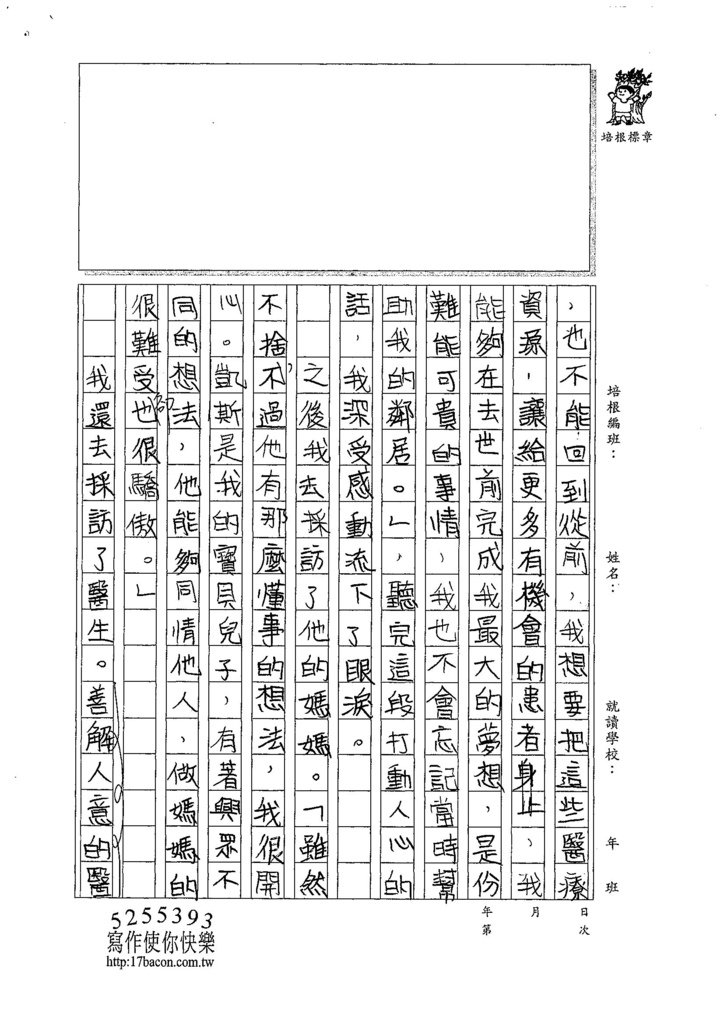 ，也不能回到從前，我想要把這些醫療
資源，讓給更多有機會的患者身上，我
能夠在去世前完成我最大的夢想，是份
難能可貴的事情，我也不會忘記當時幫
助我的鄰居。」，聽完這段打動人心的
話，我深受感動流下了眼淚。
之後我去採訪了他的媽媽。「雖然
不捨，不過他有那麼懂事的想法，我很開
心。凱斯是我的寶貝兒子，有著與眾不
同的想法，他能夠同情他人，做媽媽的
很難受卻也很驕傲。」
我還去採訪了醫生。善解人意的醫
培根標章
培根編班：
姓名：
就讀學校：
年 班
年 月 日
第 次
5255393
寫作使你快樂
http:17bacon.com.tw